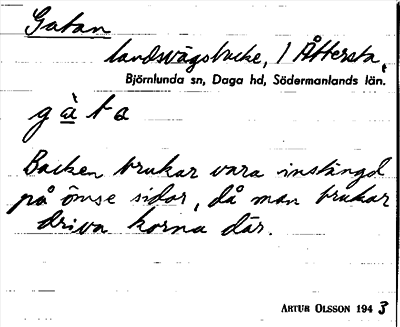 Gatan
landsvägsbacke, 1 Åttersta,
Björnlunda sn, Daga hd, Södermanlands län.
gàta
Backen brukar vara instängd
på ömse sidor, då man brukar
driva korna där.
ARTUR OLSSON 1943